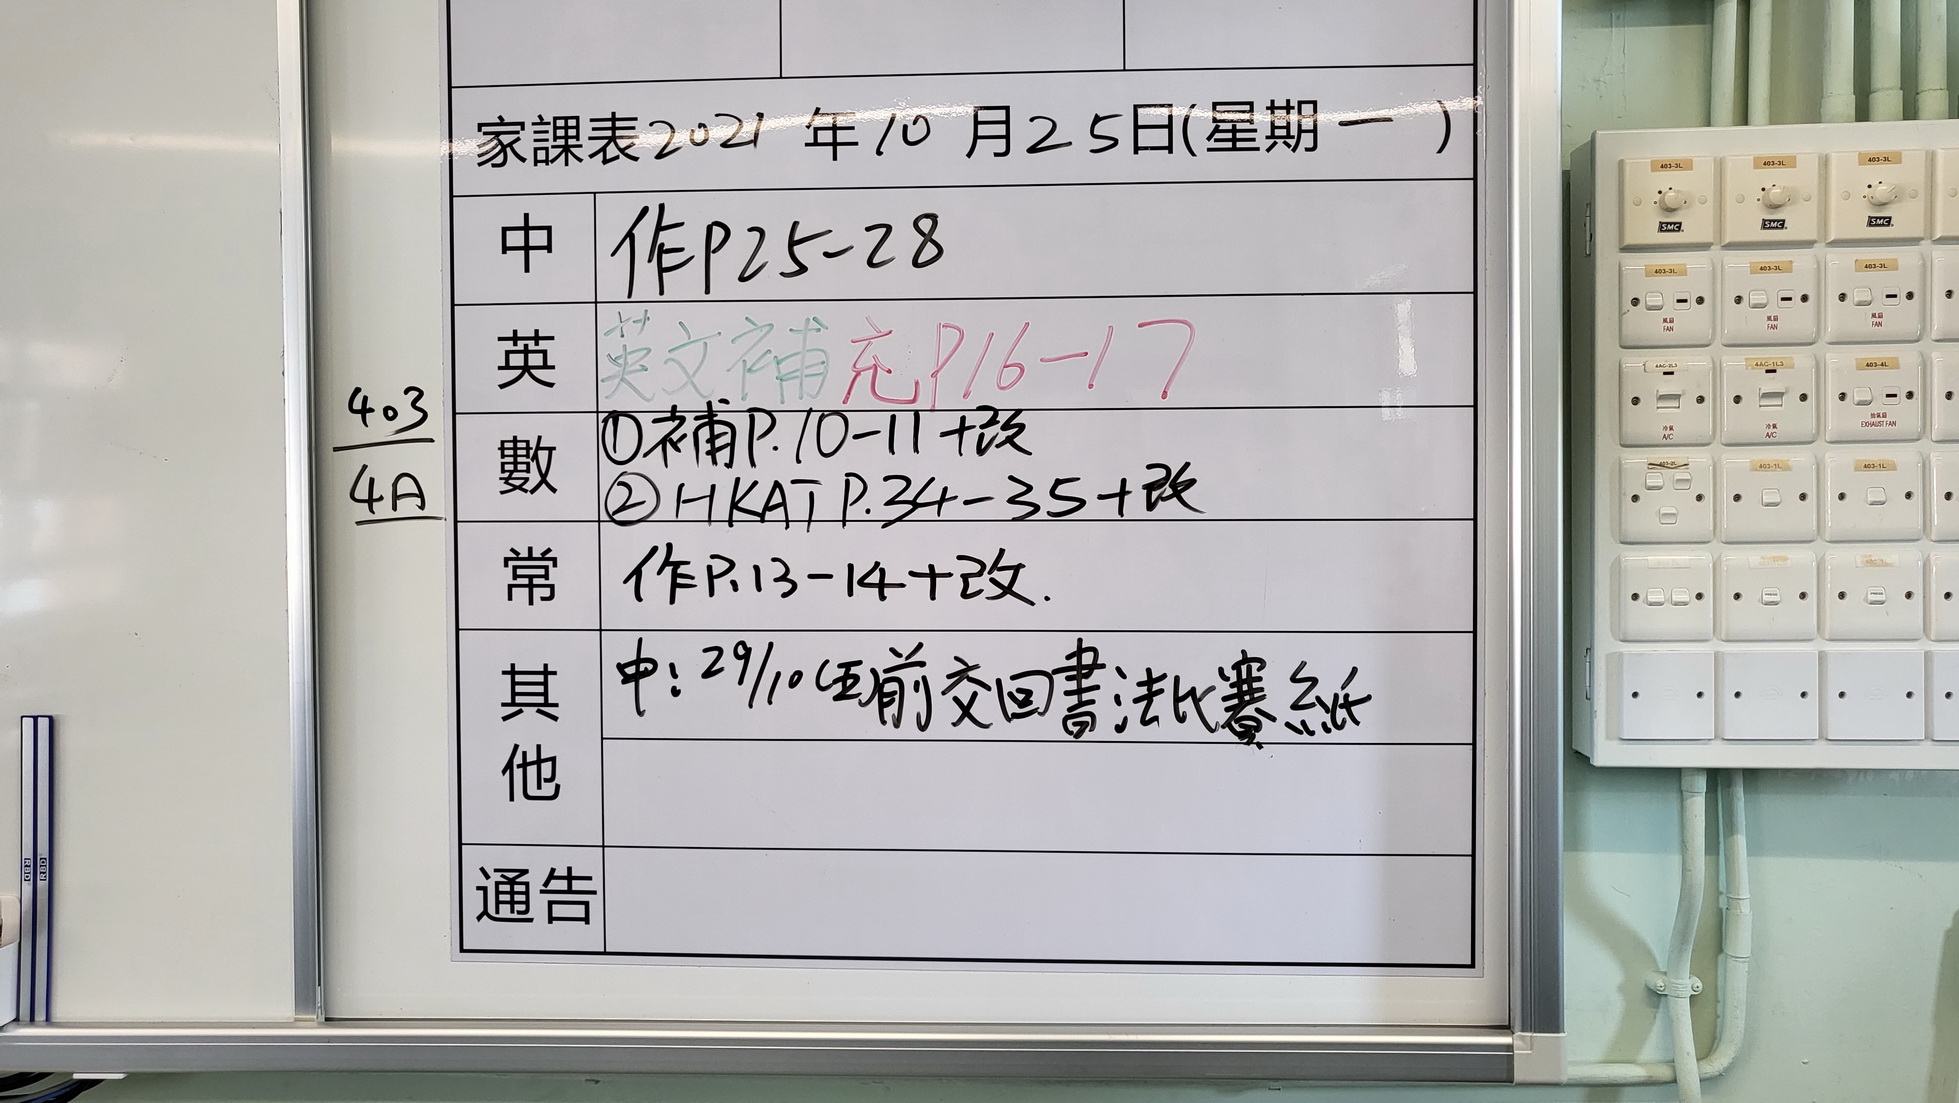 家課表2021年10月25日(星期一)
中 作P25-28
英 英文補充P16-17
數 ①補P.10-11+改
②HKAT P.34-35+改
常 作P.13-14+改.
其他 中:29/10(五)前交回書法比賽紙
通告
403
4A
403-3L 403-3L 403-3L
SMC SMC SMC
403-3L 403-3L 403-3L
風扇 風扇 風扇
FAN FAN FAN
4AC-2L3 4AC-1L3 403-4L
冷氣 冷氣 抽氣扇
A/C A/C EXHAUST FAN
403-2L 403-1L 403-1L
PRESS PRESS